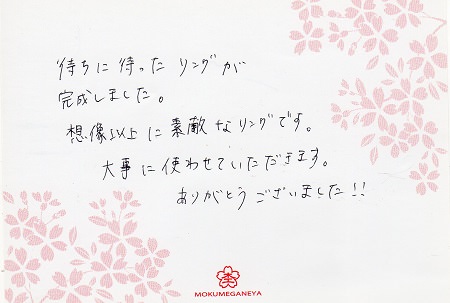 待ちに待ったリングが
完成しました。
想像以上に素敵なリングです。
大事に使わせていただきます。
ありがとうございました!!
MOKUMEGANEYA